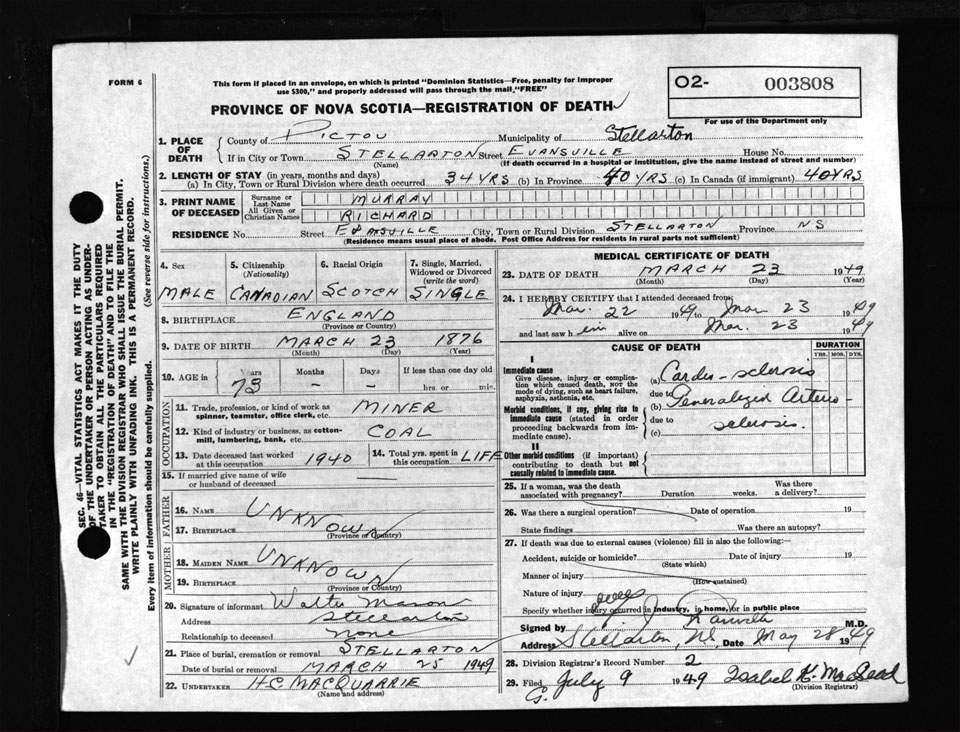 FORM 6
This form if placed in an envelope, on which is printed "Dominion Statistics—Free, penalty for improper
use $300," and properly addressed will pass through the mail, "FREE"
PROVINCE OF NOVA SCOTIA—REGISTRATION OF DEATH
O2- 003808
For use of the Department only
1. PLACE OF DEATH
County of PICTOU Municipality of Stellarton
If in City or Town STELLARTON Street EVANSVILLE House No.
(Name) (If death occurred in a hospital or institution, give the name instead of street and number)
2. LENGTH OF STAY (in years, months and days)
(a) In City, Town or Rural Division where death occurred 34 YRS (b) In Province 40 YRS (c) In Canada (if immigrant) 40 YRS
3. PRINT NAME OF DECEASED
Surname or Last Name MURRAY
All Given or Christian Names RICHARD
RESIDENCE No. Street EVANSVILLE City, Town or Rural Division STELLARTON Province NS
(Residence means usual place of abode. Post Office Address for residents in rural parts not sufficient)
4. Sex
MALE
5. Citizenship (Nationality)
CANADIAN
6. Racial Origin
SCOTCH
7. Single, Married, Widowed or Divorced (write the word)
SINGLE
8. BIRTHPLACE ENGLAND
(Province or Country)
9. DATE OF BIRTH MARCH 23 1876
(Month) (Day) (Year)
10. AGE in Years Months Days If less than one day old
73 – – hrs. or min.
OCCUPATION
11. Trade, profession, or kind of work as spinner, teamster, office clerk, etc. MINER
12. Kind of industry or business, as cotton-mill, lumbering, bank, etc. COAL
13. Date deceased last worked at this occupation 1940
14. Total yrs. spent in this occupation LIFE
15. If married give name of wife or husband of deceased
FATHER
16. Name UNKNOWN
17. Birthplace
(Province or Country)
MOTHER
18. MAIDEN NAME UNKNOWN
19. BIRTHPLACE
(Province or Country)
20. Signature of informant Walter Mason
Address Stellarton
Relationship to deceased None
21. Place of burial, cremation or removal STELLARTON
Date of burial or removal MARCH 25 1949
22. UNDERTAKER H C MACQUARRIE
(Name and address)
MEDICAL CERTIFICATE OF DEATH
23. DATE OF DEATH MARCH 23 1949
(Month) (Day) (Year)
24. I HEREBY CERTIFY that I attended deceased from
Mar. 22 1949 to Mar 23 1949
and last saw him alive on Mar. 23 1949
CAUSE OF DEATH
DURATION
YRS. MOS. DYS.
I
Immediate cause
Give disease, injury or complication which caused death, NOT the mode of dying, such as heart failure, asphyxia, asthenia, etc.
(a) Cardio-sclerosis
due to
Morbid conditions, if any, giving rise to immediate cause (stated in order proceeding backwards from immediate cause).
(b) Generalized Arterio-
due to
(c) sclerosis.
II
Other morbid conditions (if important) contributing to death but not causally related to immediate cause.
25. If a woman, was the death associated with pregnancy? Duration weeks. Was there a delivery?
26. Was there a surgical operation? Date of operation 19
State findings Was there an autopsy?
27. If death was due to external causes (violence) fill in also the following:—
Accident, suicide or homicide? Date of injury 19
(State which)
Manner of injury
(How sustained)
Nature of injury
Specify whether injury occurred in industry, in home, or in public place
Signed by M.D.
Address Stellarton, NS, Date May 28 1949
28. Division Registrar's Record Number 2
29. Filed July 9 1949 Isabel K. MacLeod
(Division Registrar)
G.
SEC. 46—VITAL STATISTICS ACT MAKES IT THE DUTY
OF THE UNDERTAKER OR PERSON ACTING AS UNDER-
TAKER TO OBTAIN ALL THE PARTICULARS REQUIRED
IN THE "REGISTRATION OF DEATH" AND TO FILE THE
SAME WITH THE DIVISION REGISTRAR WHO SHALL ISSUE THE BURIAL PERMIT.
WRITE PLAINLY WITH UNFADING INK. THIS IS A PERMANENT RECORD.
Every item of information should be carefully supplied. (See reverse side for instructions.)